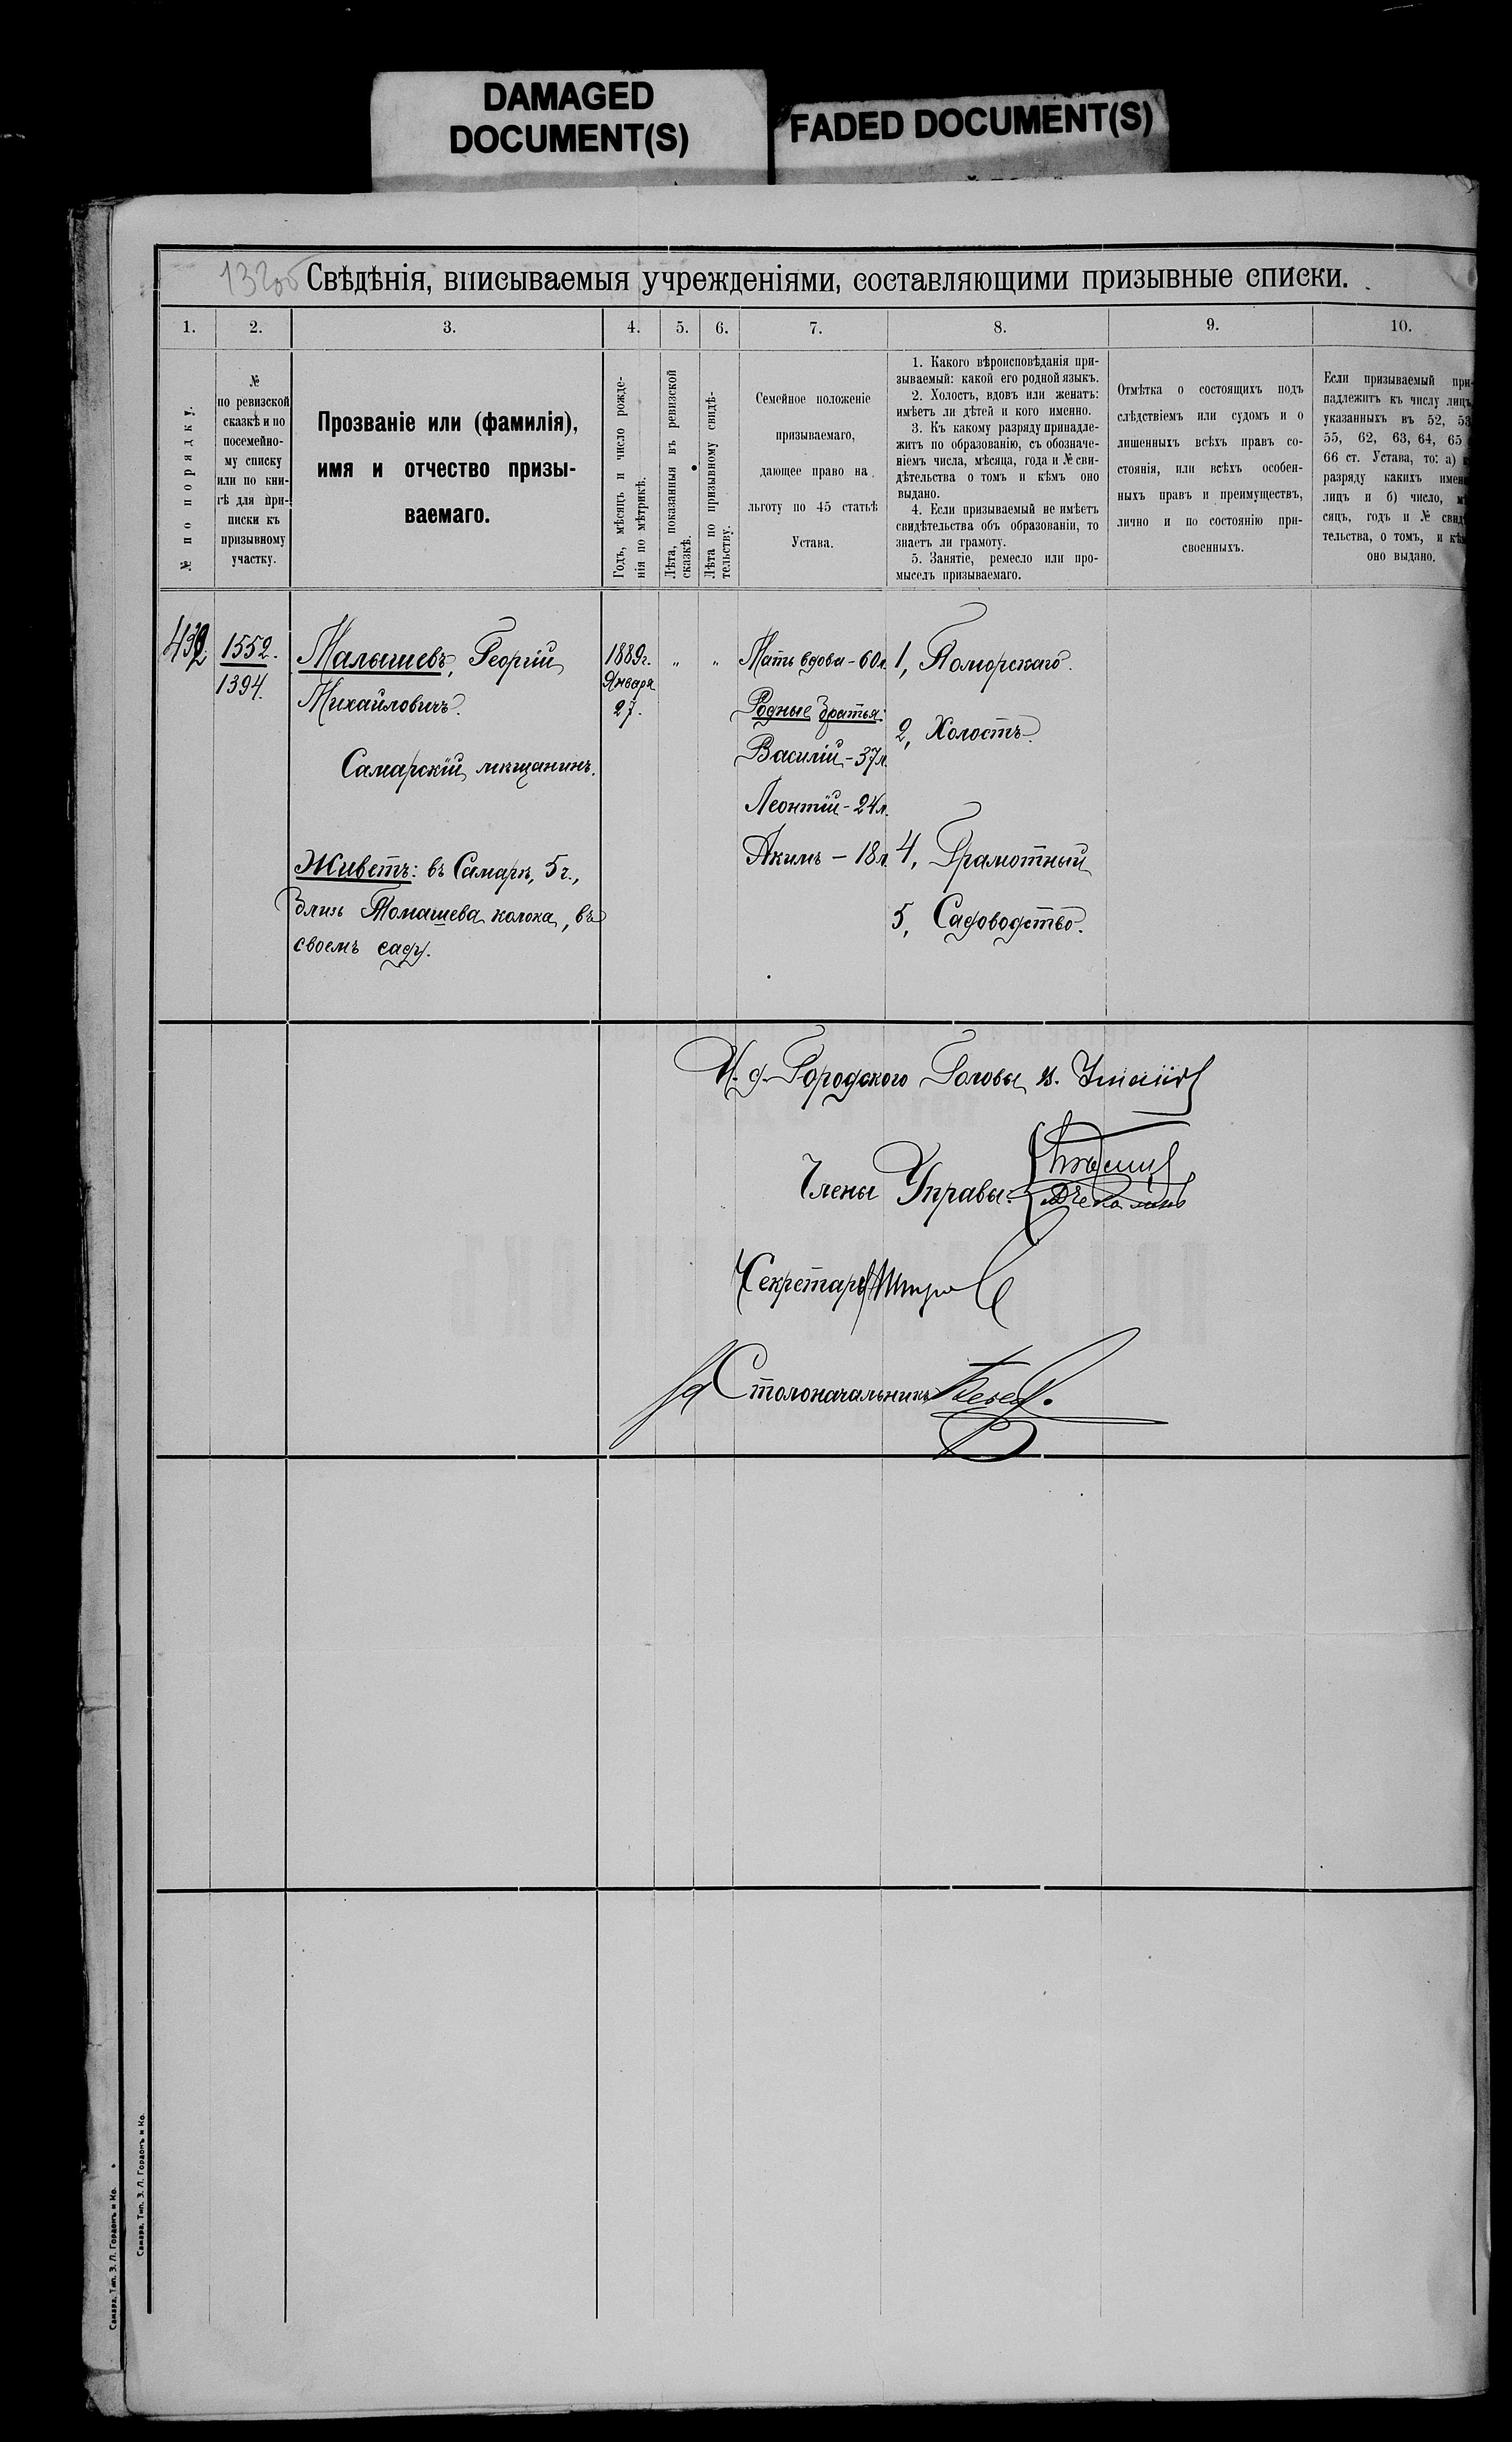 DAMAGED
DOCUMENT(S)
FADED DOCUMENT(S)
132об
Свѣдѣнія, вписываемыя учрежденіями, составляющими призывные списки.
1.
2.
3.
4.
5.
6.
7.
8.
9.
10.
№ по порядку.
№
по ревизской
сказкѣ и по
посемейно-
му списку
или по кни-
гѣ для при-
писки къ
призывному
участку.
Прозваніе или (фамилія),
имя и отчество призы-
ваемаго.
Годъ, мѣсяцъ и число рожде-
нія по мѣтрикѣ.
Лѣта, показанныя въ ревизской
сказкѣ.
Лѣта по призывному свидѣ-
тельству.
Семейное положеніе
призываемаго,
дающее право на
льготу по 45 статьѣ
Устава.
1. Какого вѣроисповѣданія при-
зываемый: какой его родной языкъ.
2. Холостъ, вдовъ или женатъ:
имѣетъ ли дѣтей и кого именно.
3. Къ какому разряду принадле-
житъ по образованію, съ обозначе-
ніемъ числа, мѣсяца, года и № сви-
дѣтельства о томъ и кѣмъ оно
выдано.
4. Если призываемый не имѣетъ
свидѣтельства объ образованіи, то
знаетъ ли грамоту.
5. Занятіе, ремесло или про-
мыселъ призываемаго.
Отмѣтка о состоящихъ подъ
слѣдствіемъ или судомъ и о
лишенныхъ всѣхъ правъ со-
стоянія, или всѣхъ особен-
ныхъ правъ и преимуществъ,
лично и по состоянію при-
своенныхъ.
Если призываемый при-
надлежитъ къ числу лицъ,
указанныхъ въ 52, 53
55, 62, 63, 64, 65
66 ст. Устава, то: а)
разряду какихъ имен
лицъ и б) число, мѣ
сяцъ, годъ и № свид
тельства, о томъ, и кѣм
оно выдано.
1552.
1394.
Малышевъ, Георгій
Михайловичъ.
Самарскій мѣщанинъ.
Живетъ: въ Самарѣ, 5 ч.,
близь Томашева колока, въ
своемъ саду.
1889 г.
Января
27.
"
"
Мать вдова - 60 л.
Родные братья:
Василій - 37 л.
Леонтій - 24 л.
Акимъ - 18 л.
1, Поморскаго.
2, Холостъ.
4, Грамотный
5, Садоводство.
И. д. Городского Головы
Члены Управы:
Секретарь
Столоначальникъ
Самара, Тип. З. Л. Гордонъ и Ко.
Самара, Тип. З. Л. Гордонъ и Ко.